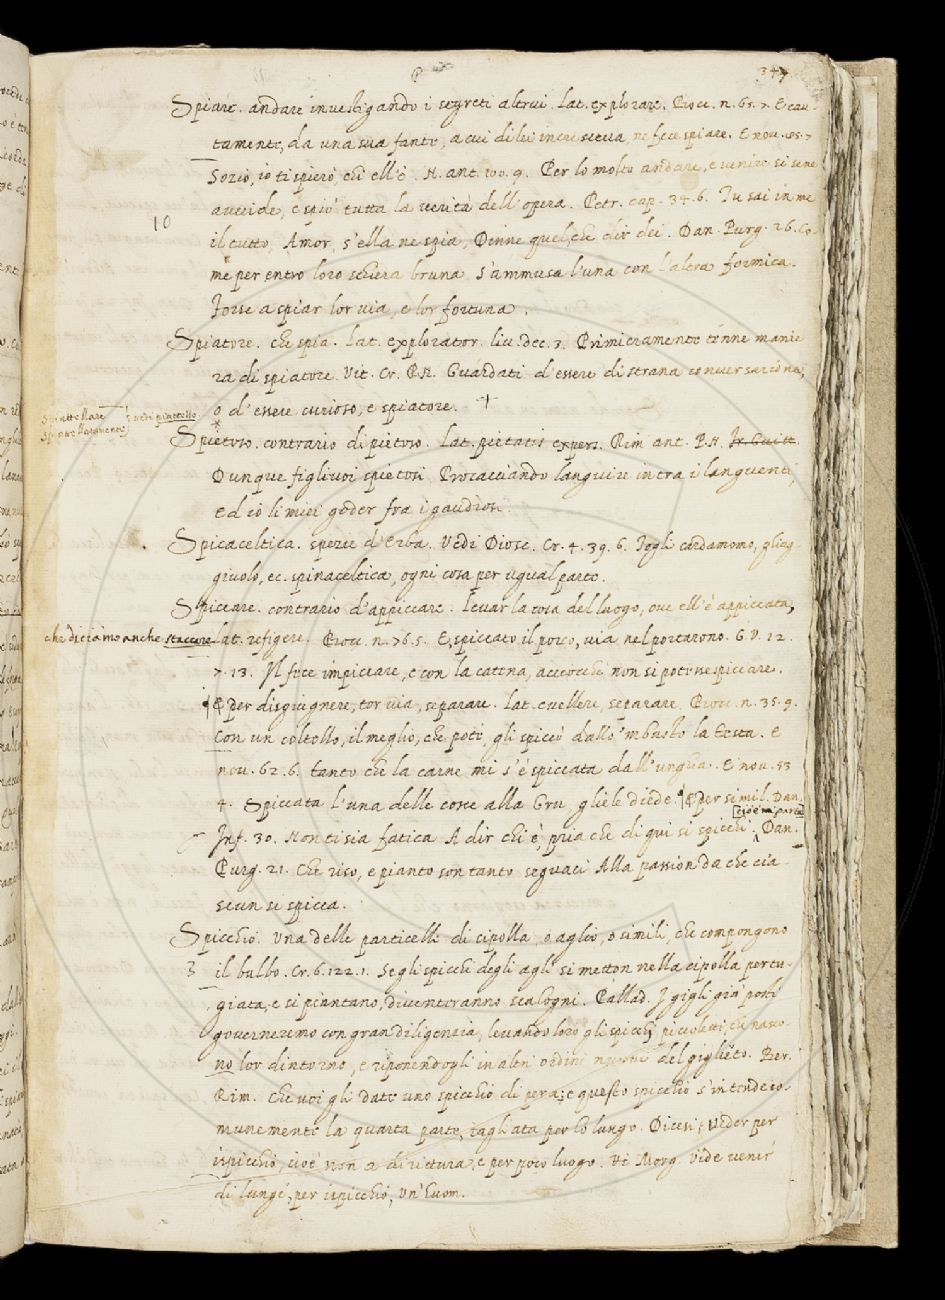 P 349
Spiare. andare investigando i segreti altrui. Lat. explorare. Bocc. n. 65. 7. E cau-
tamente, da una sua fante, a cui di lui incresceva, ne fece spiare. E nov. 85. 7
10
Sozio, io ti spierò chi ell'è. N. ant. 100. 9. Per lo molto andare, e venire si sene
avvide, e spiò tutta la verità dell'opera. Petr. cap. 34. 6. Tu sai in me
il tutto Amor, s'ella ne spia, Dinne quel, che dir dei. Dan. Purg. 26. Co-
me per entro loro schiera bruna S'ammusa l'una con l'altra formica.
Forse a spiar lor via, e lor fortuna.
Spiatore. che spia. Lat. explorator. liv. dec. 3. Primieramente tenne manie
ra di spiatore. Vit. Cr. P.N. Guardati d'essere di strana conversazione,
o d'essere curioso, e spiatore. +
vedi piattello
Spietoso. contrario di pietoso. Lat. pietatis expers. Rim. ant. P.N. Fr. Guitt.
Dunque figliuoi spietosi Procacciando languire intra i languenti,
Ed eo li miei goder fra i gaudiosi.
Spicaceltica. spezie d'Erba. Vedi Diosc. Cr. 4. 39. 6. Togli cardamomo, ghiag
giuolo, ec. spinaceltica, ogni cosa per ugual parte.
Spiccare. contrario d'appiccare. levar la cosa del luogo, ove ell'è appiccata,
che diciamo anche staccare lat. refigere. Bocc. n. 76. 5. E, spiccato il porco, via nel portarono. G. V. 12.
7. 13. Il fece impiccare, e con la catena, acciocchè non si potesse spiccare.
¶ E per disgiugnere, tor via, separare. Lat. evellere, separare. Bocc. n. 35. 9.
Con un coltello, il meglio, che potè, gli spiccò dallo 'mbusto la testa. E
nov. 62. 6. tanto che la carne mi s'è spiccata dall'unghia. E nov. 53
4. Spiccata l'una delle cosce alla Gru gliele diede. ¶ E per simil. Dan.
cioè si parta
Inf. 30. Non ti sia fatica A dir chi è, pria che di qui si spicchi. Dan.
Purg. 21. Che riso, e pianto son tanto seguaci Alla passion da che cia-
scun si spicca.
Spicchio. Una delle particelle di cipolla, o aglio, o simili, che compongono
3 il bulbo. Cr. 6. 122. 1. Se gli spicchi degli agli si metton nella cipolla pertu-
giata, e si piantano, diventeranno scalogni. Pallad. I gigli già posti
governeremo con gran diligenzia, levando loro gli spicchi piccoletti, che nasco-
no lor dintorno, e riponendogli in altri ordini nuovi del giglieto. Ber.
Rim. Che voi gli date uno spicchio di pera; e questo spicchio s'intende co-
munemente la quarta parte, tagliata per lo lungo. Dicesi, Veder per
ispicchio, cioè non a dirittura, e per poco luogo. Vi Morg. Vide venir
di lungi, per ispicchio, Un'huom.